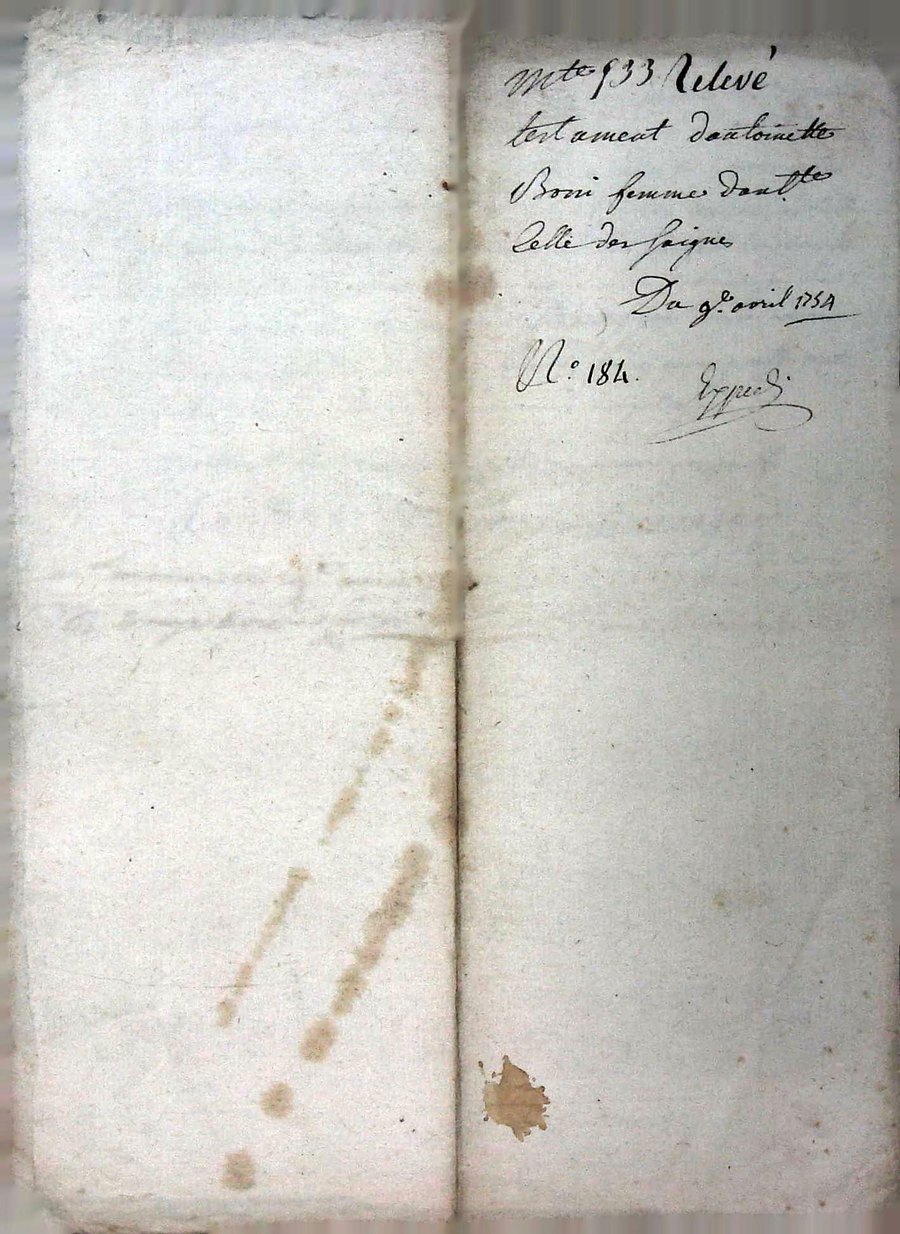 mte 933 Relevé
testament dantoinette
Boni femme dantte
Celle des saignes
Du 9e avril 1754
No 184.
Expedi